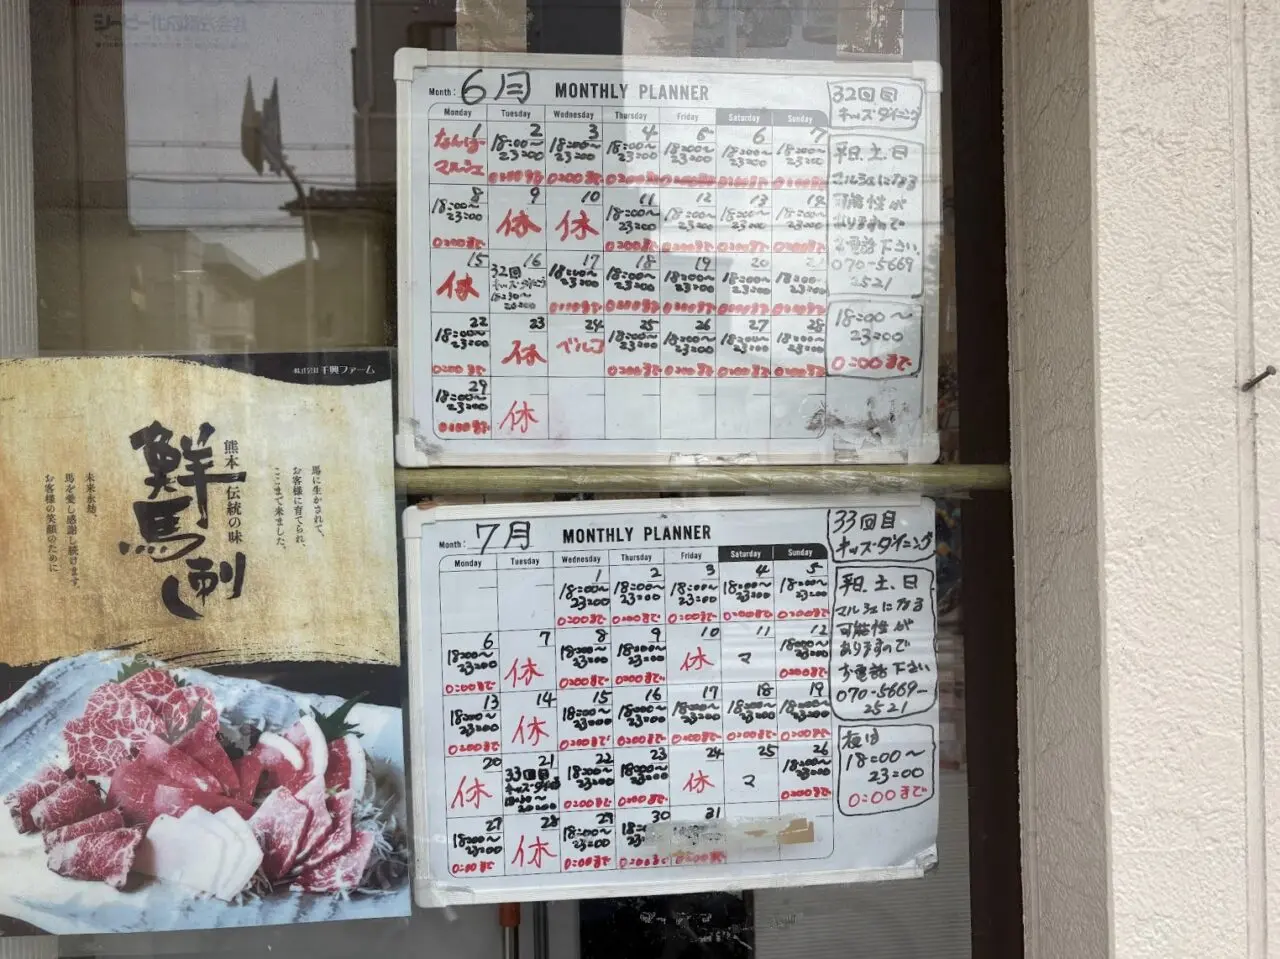 Month: 6月 MONTHLY PLANNER
Monday Tuesday Wednesday Thursday Friday Saturday Sunday
1 2 3 4 5 6 7
マルシェ
18:00〜 18:00〜 18:00〜 18:00〜 18:00〜 18:00〜
23:00 23:00 23:00 23:00 23:00 23:00
0:00まで 0:00まで 0:00まで 0:00まで 0:00まで 0:00まで
8 9 10 11 12 13 14
18:00〜 休 休 18:00〜 18:00〜 18:00〜 18:00〜
23:00 23:00 23:00 23:00 23:00
0:00まで 0:00まで 0:00まで 0:00まで 0:00まで
15 16 17 18 19 20 21
休 32回 18:00〜 18:00〜 18:00〜 18:00〜 18:00〜
キッズダイニング 23:00 23:00 23:00 23:00 23:00
18:30〜
20:00
0:00まで 0:00まで 0:00まで 0:00まで 0:00まで
22 23 24 25 26 27 28
18:00〜 休 ベルコ 18:00〜 18:00〜 18:00〜 18:00〜
23:00 23:00 23:00 23:00 23:00
0:00まで 0:00まで 0:00まで 0:00まで 0:00まで
29
18:00〜 休
23:00
0:00まで
32回目
キッズダイニング
平日、土、日
マルシェになる
可能性が
ありますので
お電話下さい
070-5669
2521
18:00〜
23:00
0:00まで
Month: 7月 MONTHLY PLANNER
Monday Tuesday Wednesday Thursday Friday Saturday Sunday
1 2 3 4 5
18:00〜 18:00〜 18:00〜 18:00〜 18:00〜
23:00 23:00 23:00 23:00 23:00
0:00まで 0:00まで 0:00まで 0:00まで 0:00まで
6 7 8 9 10 11 12
18:00〜 休 18:00〜 18:00〜 休 マ 18:00〜
23:00 23:00 23:00 23:00
0:00まで 0:00まで 0:00まで 0:00まで
13 14 15 16 17 18 19
18:00〜 休 18:00〜 18:00〜 18:00〜 18:00〜 18:00〜
23:00 23:00 23:00 23:00 23:00 23:00
0:00まで 0:00まで 0:00まで 0:00まで 0:00まで 0:00まで
20 21 22 23 24 25 26
休 33回目 18:00〜 18:00〜 休 マ 18:00〜
キッズダイニング 23:00 23:00 23:00
18:30〜
20:00
0:00まで 0:00まで 0:00まで
27 28 29 30 31
18:00〜 休 18:00〜 18:
23:00 23:00
0:00まで 0:00まで 0:00まで 0:00まで
33回目
キッズダイニング
平日、土、日
マルシェになる
可能性が
ありますので
お電話下さい
070-5669-
2521
夜は
18:00〜
23:00
0:00まで
株式会社 千興ファーム
馬に生かされて、
お客様に育てられ、
ここまで来ました。
熊本 伝統の味
鮮馬刺し
未来永劫、
馬を愛し感謝し続けます。
お客様の笑顔のために